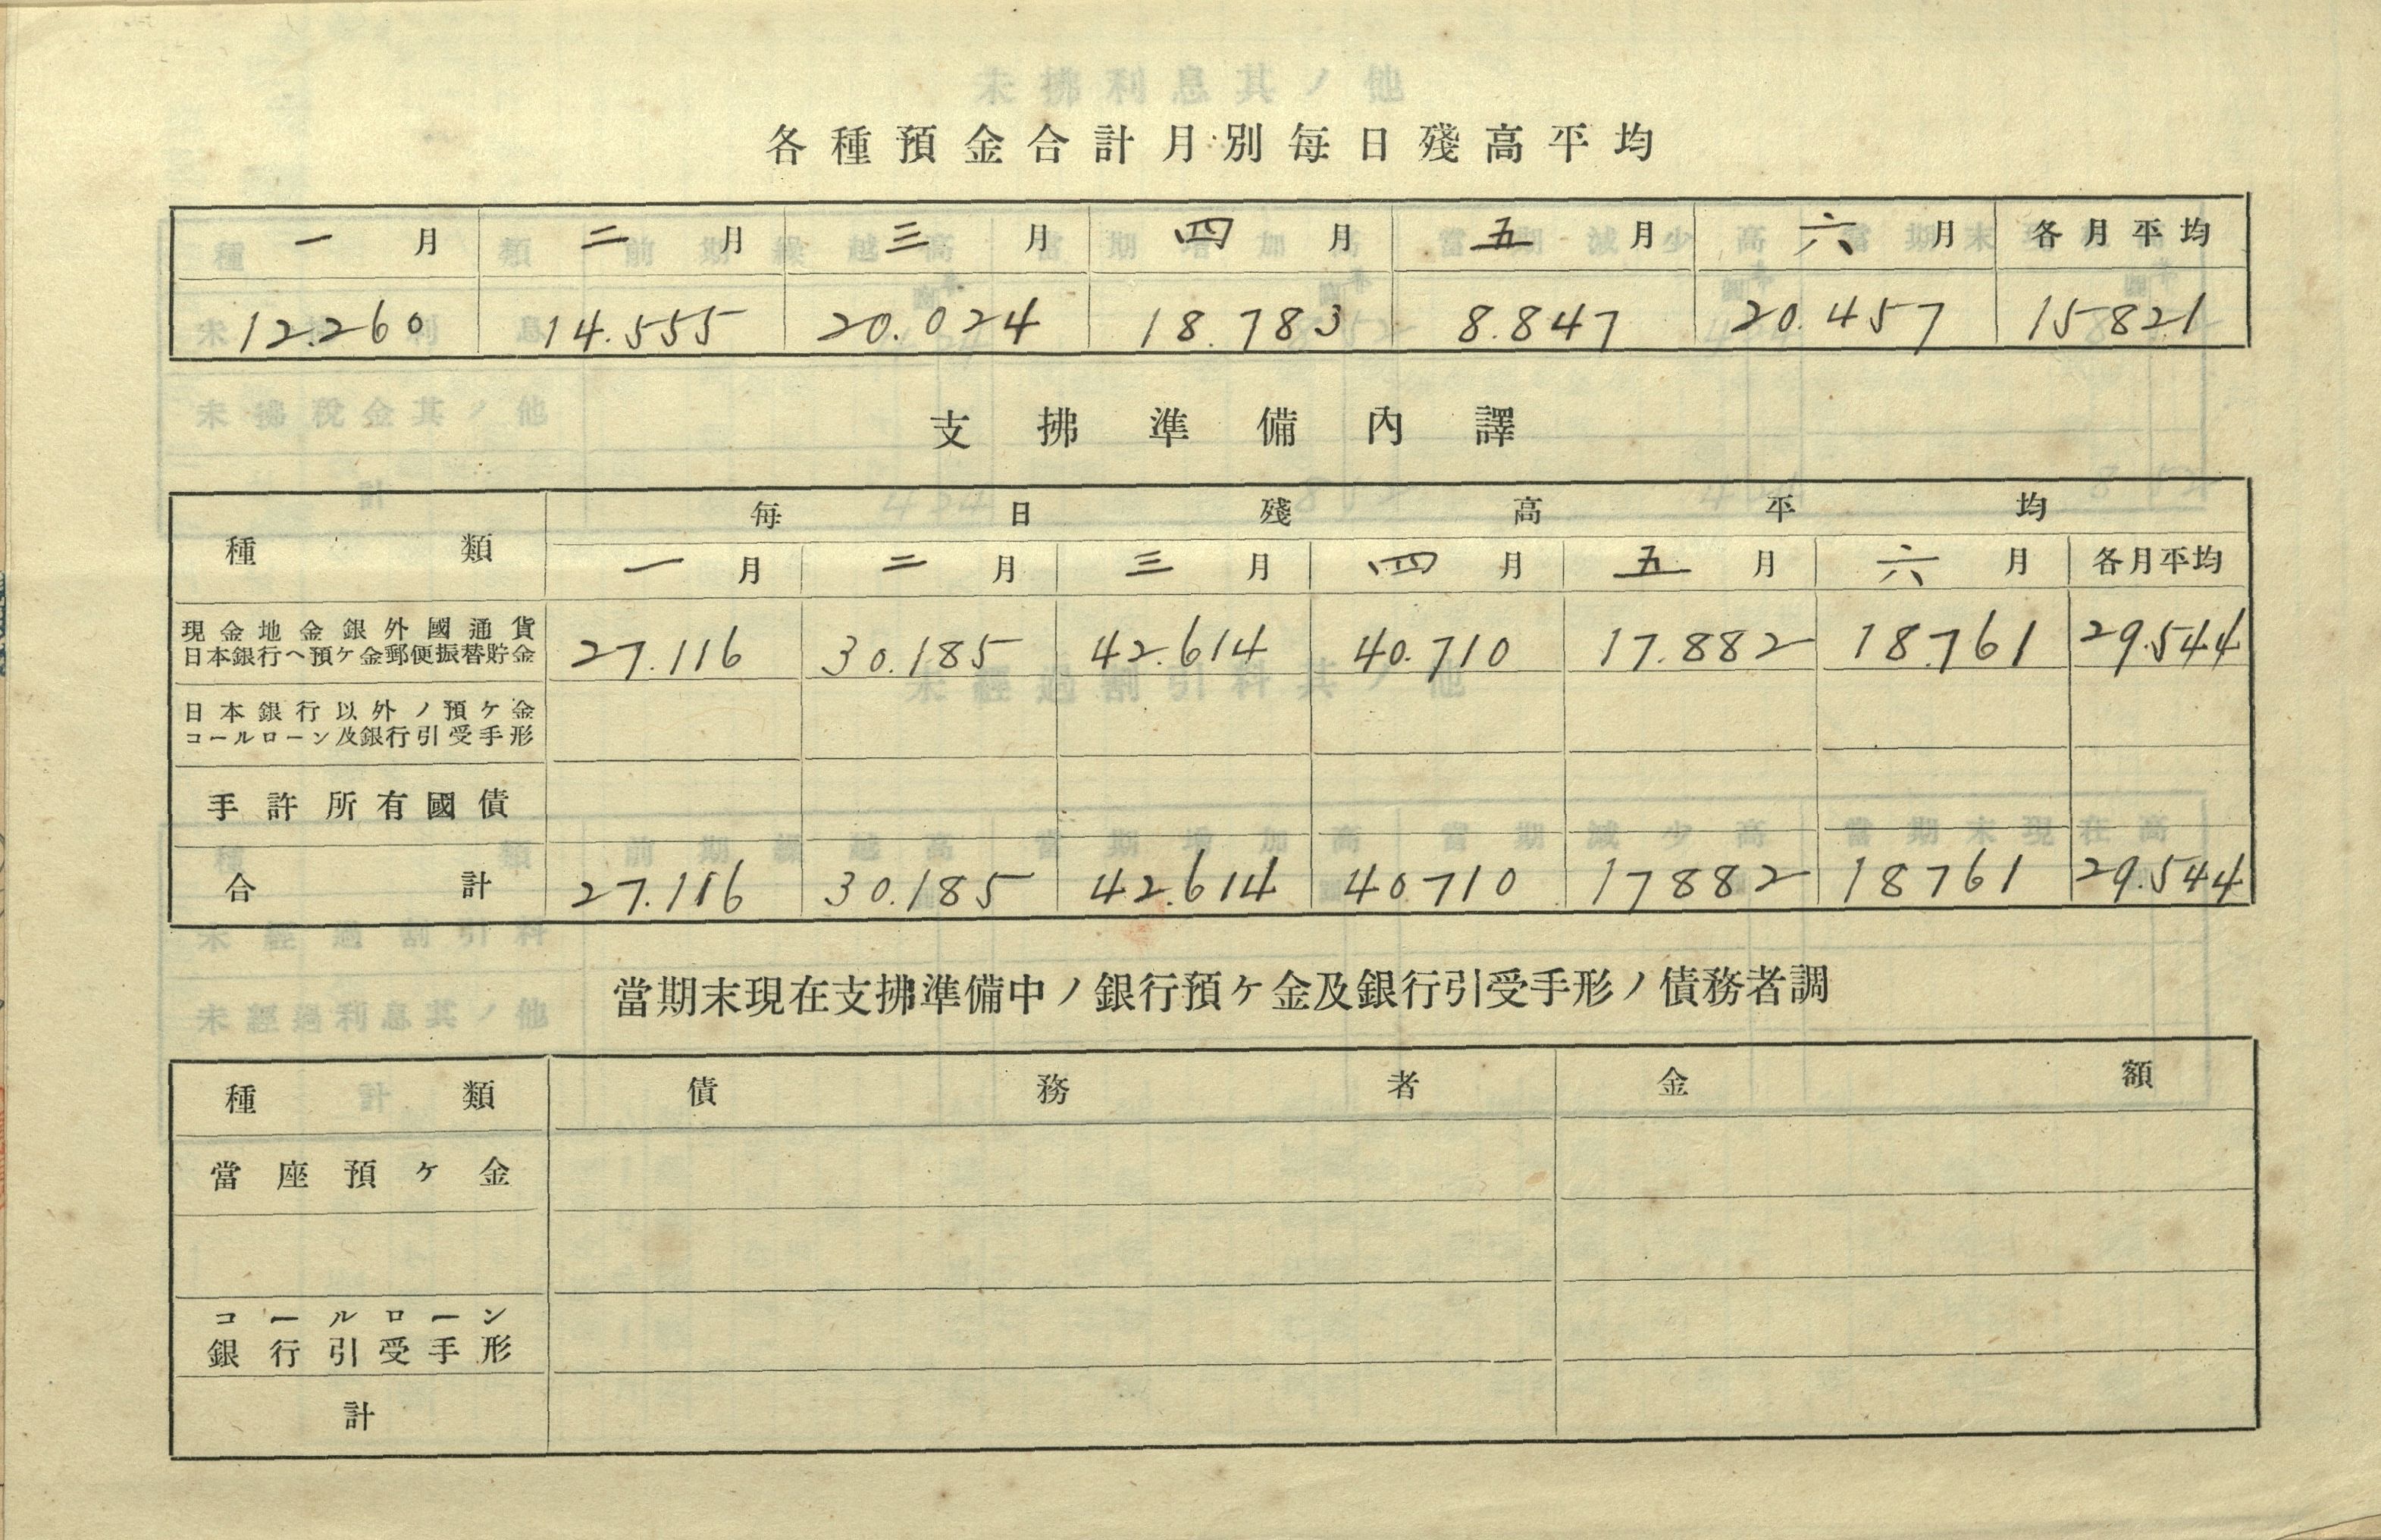 各種預金合計月別每日殘高平均
一月 二月 三月 四月 五月 六月 各月平均
12.260 14.555 20.024 18.783 8.847 20.457 15821
支拂準備內譯
種類 每日殘高平均
一月 二月 三月 四月 五月 六月 各月平均
現金地金銀外國通貨
日本銀行ヘ預ケ金郵便振替貯金 27.116 30.185 42.614 40.710 17.882 18.761 29.544
日本銀行以外ノ預ケ金
コールローン及銀行引受手形
手許所有國債
合計 27.116 30.185 42.614 40710 17882 18761 29.544
當期末現在支拂準備中ノ銀行預ケ金及銀行引受手形ノ債務者調
種類 債務者 金額
當座預ケ金
コールローン
銀行引受手形
計